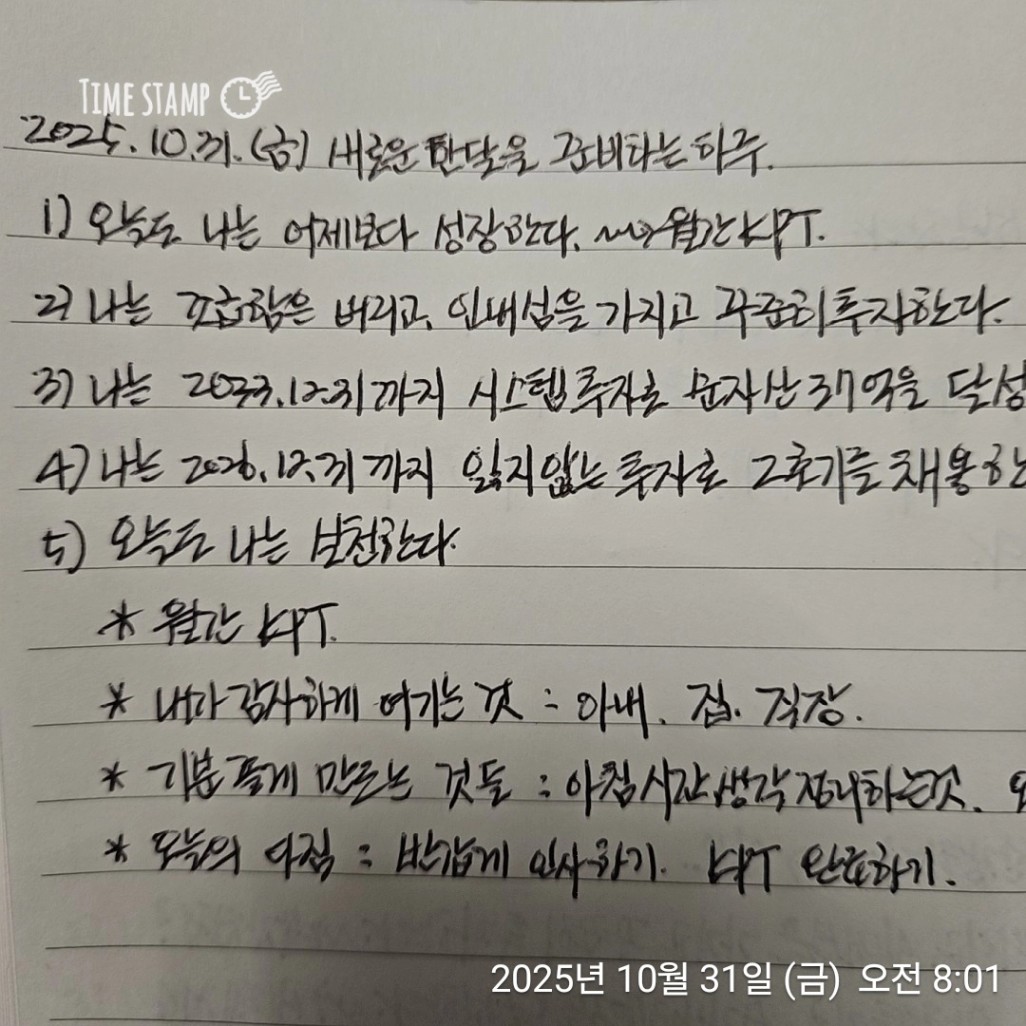 TIME STAMP
2025. 10. 31. (금) 새로운 한달을 준비하는 하루.
1) 오늘도 나는 어제보다 성장한다. ~~> 월간 KPT.
2) 나는 조급함은 버리고, 인내심을 가지고 꾸준히 투자한다.
3) 나는 2033.12.31까지 시스템투자로 순자산 37억을 달성
4) 나는 2026.12.31까지 잃지않는 투자로 2호기를 채용한
5) 오늘도 나는 실천한다.
* 월간 KPT.
* 내가 감사하게 여기는 것 : 아내. 집. 직장.
* 기분좋게 만드는 것들 : 아침시간 생각 정리하는것.
* 오늘의 다짐 : 반갑게 인사하기. KPT 완료하기.
2025년 10월 31일 (금) 오전 8:01